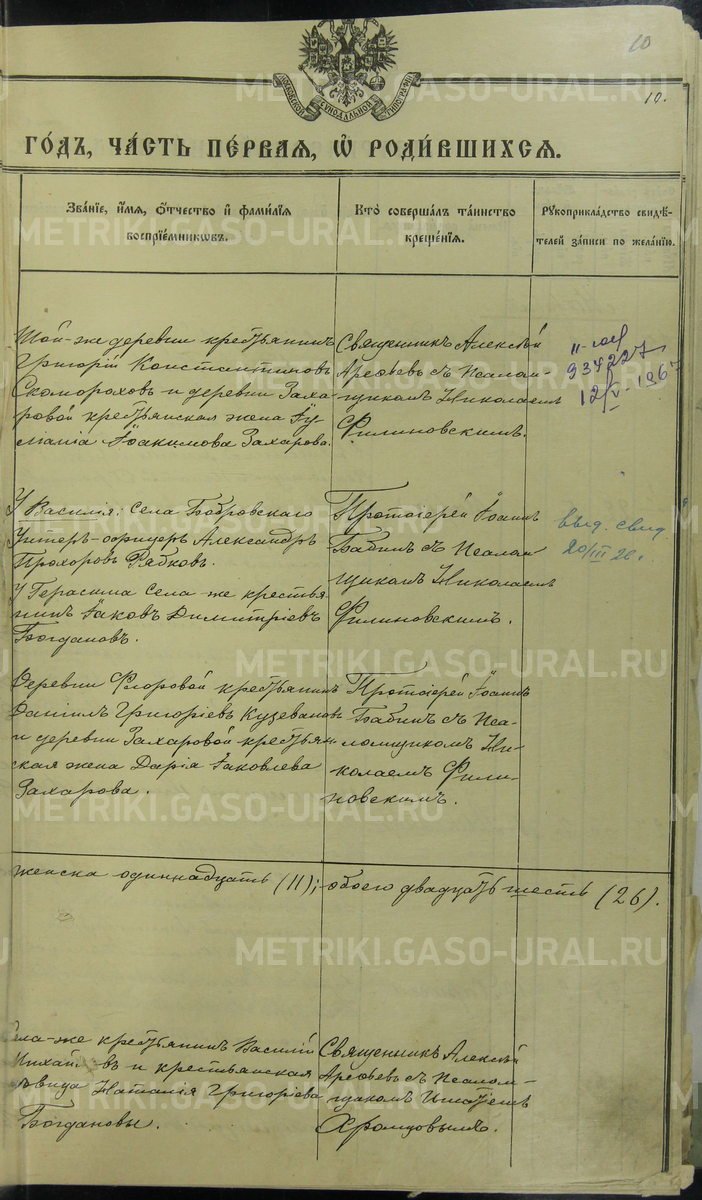 10
10.
МОСКОВСКОЙ СѴНОДАЛЬНОЙ ТИПОГРАФІИ
ГО́ДЪ, ЧА́СТЬ ПЕ́РВАЯ, Ѡ҆ РОДИ́ВШИХСЯ.
Зва́ніе, и҆́мя, ѻ҆́тчество и҆ фами́лія
воспріе́мникωвъ.
Кто̀ соверша́лъ та́инство
креще́нія.
Рꙋкоприкла́дство свидѣ́-
телей за́писи по жела́нію.
Той-же деревни крестьянинъ
Григорій Константиновъ
Скомороховъ и деревни Заха-
ровой крестьянская жена Іу-
ліанія Іоакимова Захарова.
Священникъ Алексѣй
Арефьевъ съ Псалом-
щикомъ Николаемъ
Филиновскимъ.
II-юр
934227
12/V-196
У Василія: Села Бобровскаго
Унтеръ-офицеръ Александръ
Прохоровъ Рябковъ.
У Герасима Села-же крестья-
нинъ Іаковъ Димитріевъ
Богдановъ.
Протоіерей Іоаннъ
Бабинъ съ Псалом-
щикомъ Николаемъ
Филиновскимъ.
выд. свид.
20/III 26 г.
Деревни Флоровой крестьянинъ
Даніилъ Григоріевъ Кузевановъ
и деревни Захаровой крестьян-
ская жена Дарія Іаковлева
Захарова.
Протоіерей Іоаннъ
Бабинъ съ Пса-
ломщикомъ Ни-
колаемъ Фили-
новскимъ.
женска одиннадцать (11); обоего двадцать шесть (26).
Села-же крестьянинъ Василій
Михайловъ и крестьянская
дѣвица Наталія Григоріева
Богдановы.
Священникъ Алексѣй
Арефьевъ съ Псалом-
щикомъ Игнатіемъ
Хромцовымъ.
METRIKI.GASO-URAL.RU